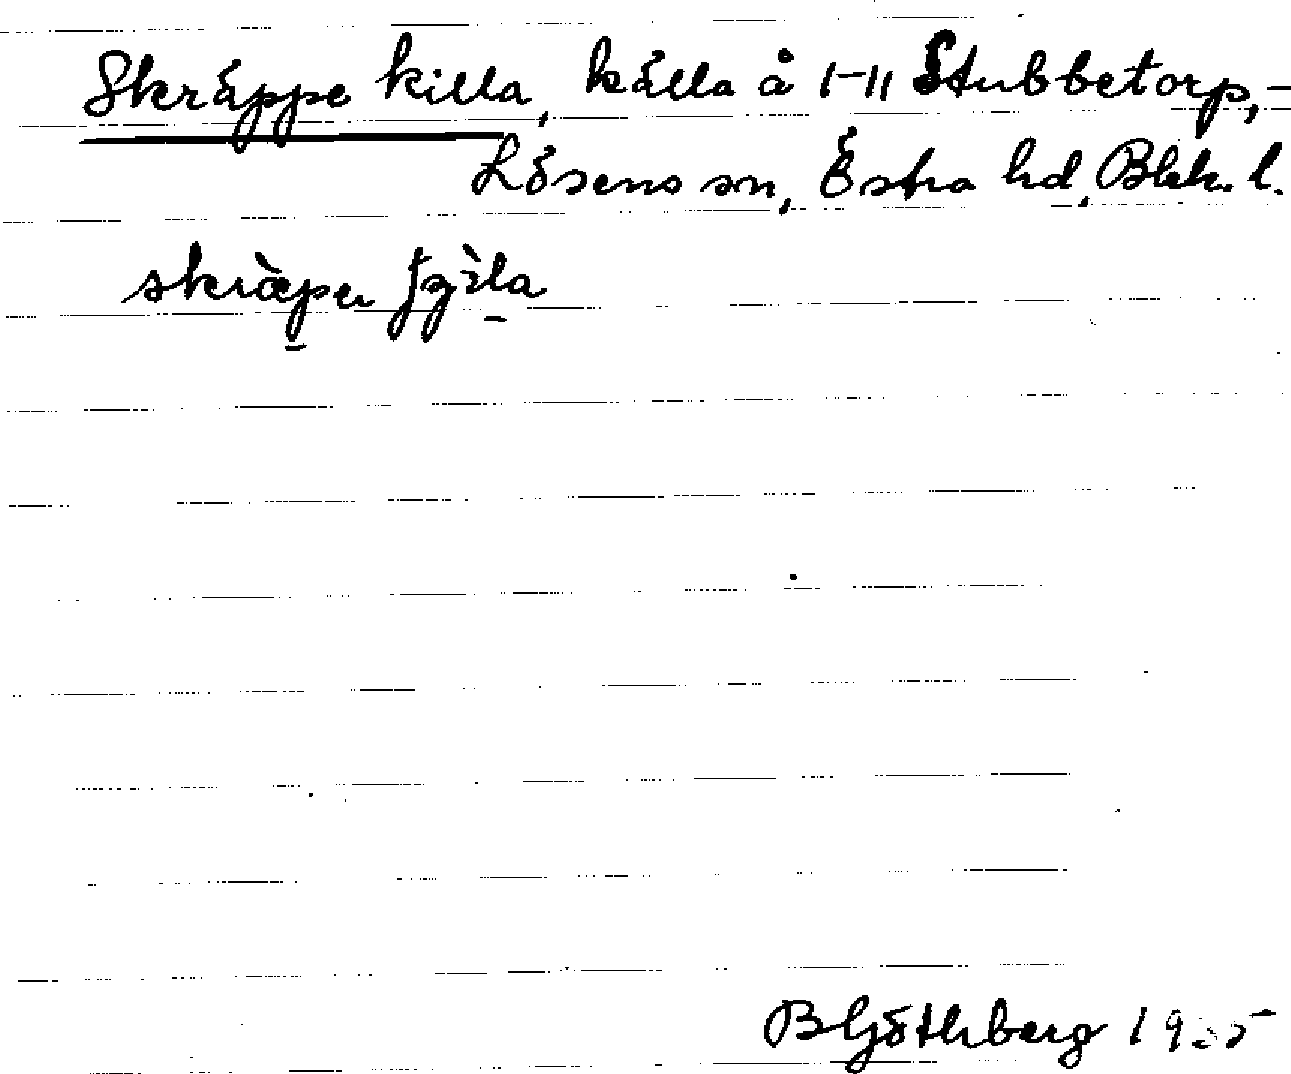 Skräppe killa, källa å 1-11 Stubbetorp,-
Lösens sn, Östra hd, Blek. l.
skræper
B Göthberg